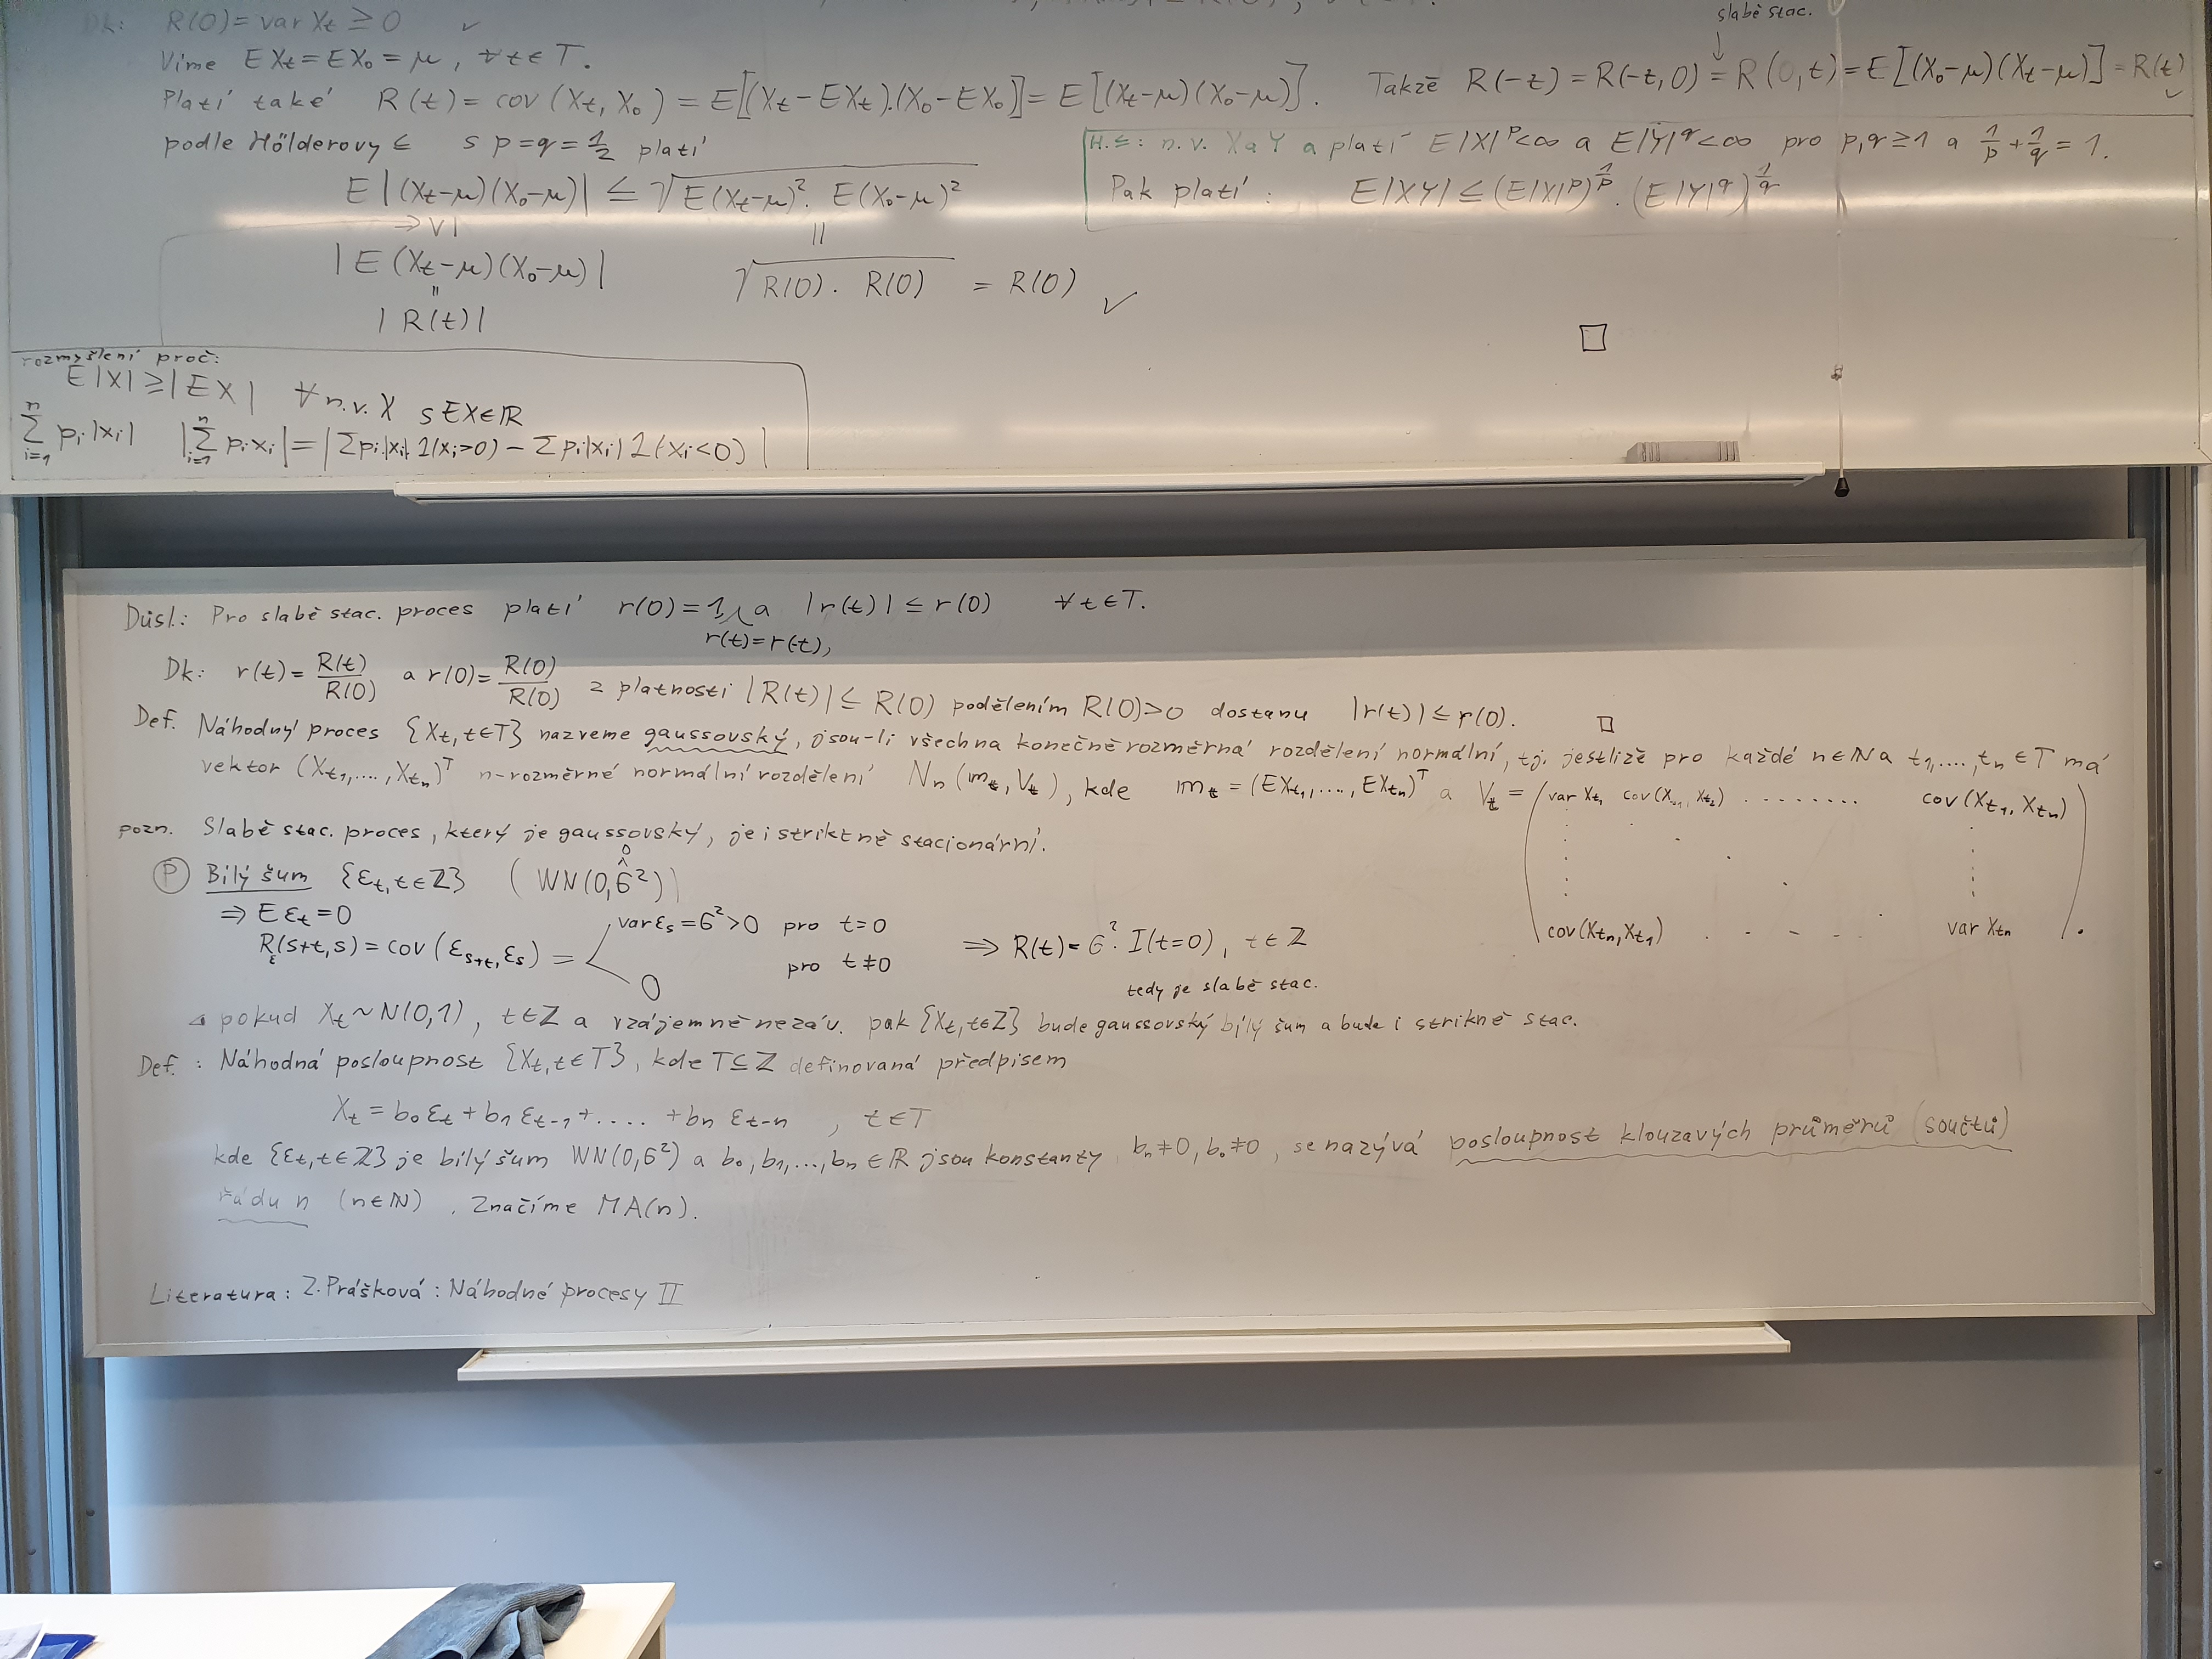 slabě stac.
Dk: R(0) = var Xt ≥ 0 ✓
Víme EXt = EX0 = μ, ∀t∈T.
Platí také R(t) = cov(Xt, X0) = E[(Xt-EXt).(X0-EX0)] = E[(Xt-μ)(X0-μ)]. Takže R(-t) = R(-t,0) = R(0,t) = E[(X0-μ)(Xt-μ)] = R(t) ✓
podle Hölderovy ≤ s p=q=1/2 platí
H.≤: n.v. X a Y a platí E|X|^p<∞ a E|Y|^q<∞ pro p,q≥1 a 1/p+1/q=1.
Pak platí: E|XY| ≤ (E|X|^p)^1/p . (E|Y|^q)^1/q
E|(Xt-μ)(X0-μ)| ≤ √E(Xt-μ)². E(X0-μ)²
→ ∨| ||
|E(Xt-μ)(X0-μ)| √R(0). R(0) = R(0) ✓
||
|R(t)| □
rozmyšlení proč:
E|X| ≥ |EX| ∀ n.v. X s EX∈ℝ
∑_{i=1}^n pi|xi| |∑_{i=1}^n pixi| = |∑pi|xi| 1(xi>0) - ∑pi|xi| 1(xi<0)|
Důsl.: Pro slabě stac. proces platí r(0)=1, a |r(t)| ≤ r(0) ∀t∈T.
r(t)=r(-t),
Dk: r(t) = R(t)/R(0) a r(0) = R(0)/R(0) z platnosti |R(t)| ≤ R(0) podělením R(0)>0 dostanu |r(t)| ≤ r(0). □
Def. Náhodný proces {Xt, t∈T} nazveme gaussovský, jsou-li všechna konečně rozměrná rozdělení normální, tj. jestliže pro každé n∈ℕ a t1,....,tn ∈T má
vektor (Xt1,....,Xtn)^T n-rozměrné normální rozdělení Nn(mt, Vt), kde mt = (EXt1,....,EXtn)^T a Vt = (var Xt1 cov(Xt1, Xt2) ........ cov(Xt1, Xtn)
cov(Xtn, Xt1) . . - - . var Xtn).
pozn. Slabě stac. proces, který je gaussovský, je i striktně stacionární.
Ⓟ Bílý šum {εt, t∈ℤ} (WN(0,σ²))
0
^
⇒ Eεt = 0
Rε(s+t,s) = cov(εs+t, εs) = var εs = σ²>0 pro t=0
0 pro t≠0
⇒ R(t) = σ². I(t=0), t∈ℤ
tedy je slabě stac.
pokud Xt ~ N(0,1), t∈ℤ a vzájemně nezáv. pak {Xt, t∈ℤ} bude gaussovský bílý šum a bude i strikně stac.
Def.: Náhodná posloupnost {Xt, t∈T}, kde T⊆ℤ definovaná předpisem
Xt = b0 εt + b1 εt-1 + .... + bn εt-n , t∈T
kde {εt, t∈ℤ} je bílý šum WN(0,σ²) a b0, b1,...,bn ∈ℝ jsou konstanty bn≠0, b0≠0, se nazývá posloupnost klouzavých průměrů (součtů)
řádu n (n∈ℕ). Značíme MA(n).
Literatura: Z. Prášková: Náhodné procesy II